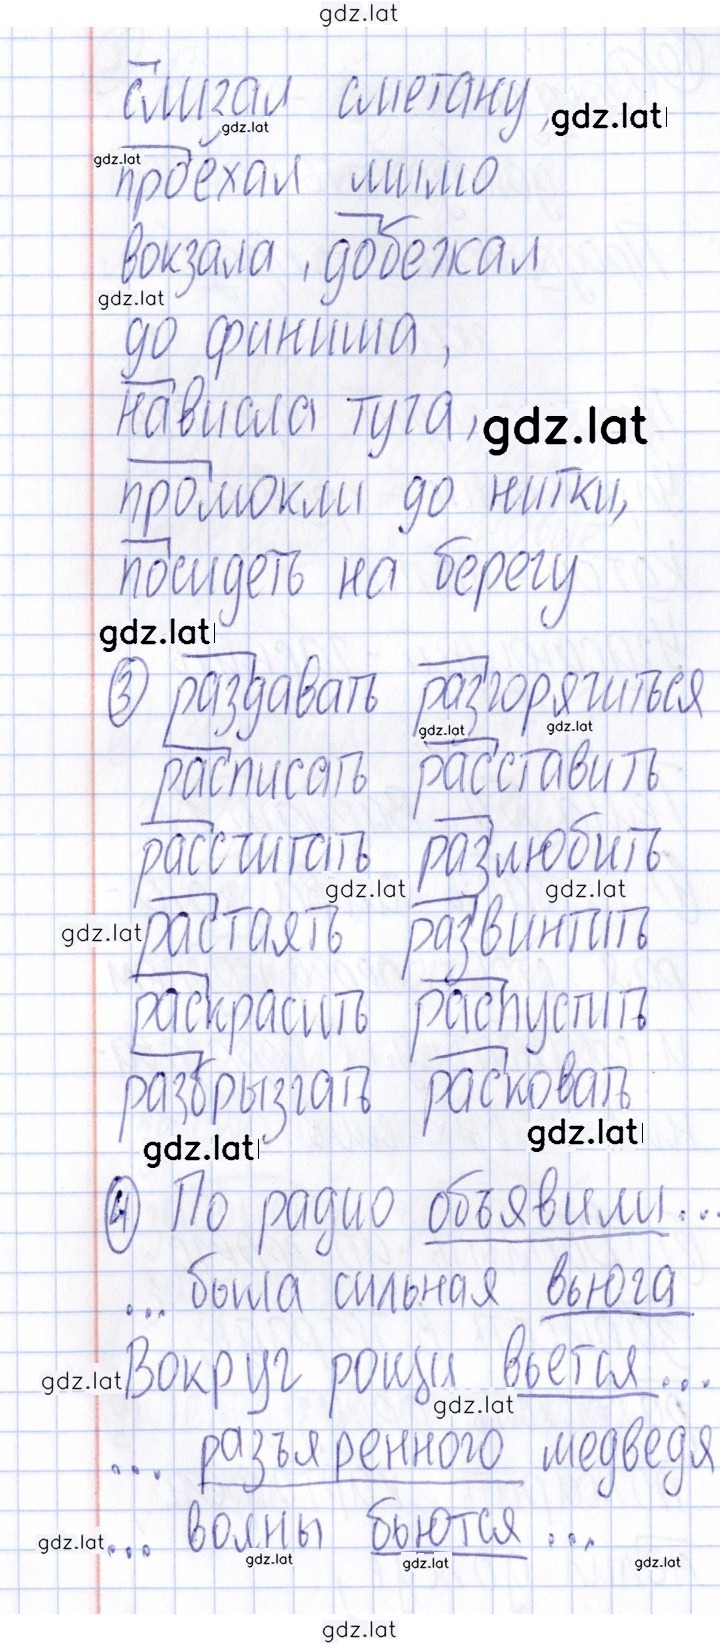 gdz.lat
слизал сметану, gdz.lat
gdz.lat
gdz.lat
проехал мимо
вокзала, добежал
gdz.lat
до финиша,
нависла туча, gdz.lat
промокли до нитки,
посидеть на берегу
gdz.lat
3 раздавать разгорячиться
gdz.lat gdz.lat
расписать расставить
рассчитать разлюбить
gdz.lat gdz.lat
gdz.lat растаять развинтить
раскрасить распустить
разбрызгать расковать
gdz.lat gdz.lat
4 По радио объявили...
... была сильная вьюга
gdz.lat Вокруг рощи вьется...
gdz.lat
... разъяренного медведя
gdz.lat ... волны бьются ...
gdz.lat gdz.lat gdz.lat
gdz.lat